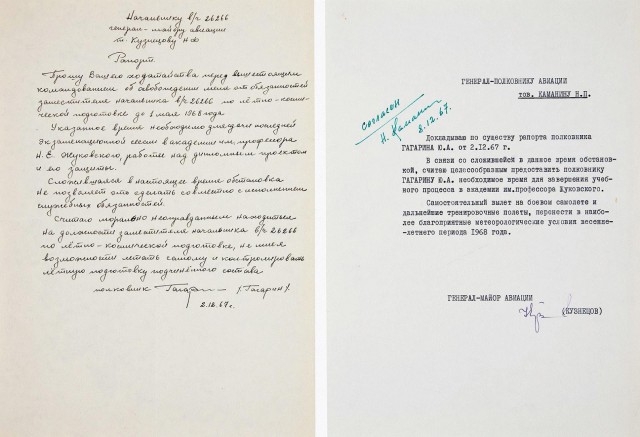 Начальнику в/ч 26266
генерал-майору авиации
т. Кузнецову Н.Ф.
Рапорт.
Прошу Вашего ходатайства перед вышестоящим
командованием об освобождении меня от обязанностей
заместителя начальника в/ч 26266 по лётно-косми-
ческой подготовке до 1 мая 1968 года.
Указанное время необходимо для сдачи последней
экзаменационной сессии в академии им. профессора
Н.Е. Жуковского, работе над дипломным проектом
и его защиты.
Сложившаяся в настоящее время обстановка
не позволяет это сделать совместно с исполнением
служебных обязанностей.
Считаю морально неоправданным находиться
на должности заместителя начальника в/ч 26266
по лётно-космической подготовке, не имея
возможности летать самому и контролировать
лётную подготовку подчинённого состава
полковник Гагарин /Гагарин/
2.12.67г.
ГЕНЕРАЛ-ПОЛКОВНИКУ АВИАЦИИ
тов. КАМАНИНУ Н.П.
согласен
Н. Каманин
2.12.67.
Докладываю по существу рапорта полковника
ГАГАРИНА Ю.А. от 2.12.67 г.
В связи со сложившейся в данное время обстанов-
кой, считаю целесообразным предоставить полковнику
ГАГАРИНУ Ю.А. необходимое время для завершения учеб-
ного процесса в академии им.профессора Жуковского.
Самостоятельный вылет на боевом самолете и
дальнейшие тренировочные полеты, перенести в наибо-
лее благоприятные метеорологические условия весенне-
летнего периода 1968 года.
ГЕНЕРАЛ-МАЙОР АВИАЦИИ
(КУЗНЕЦОВ)